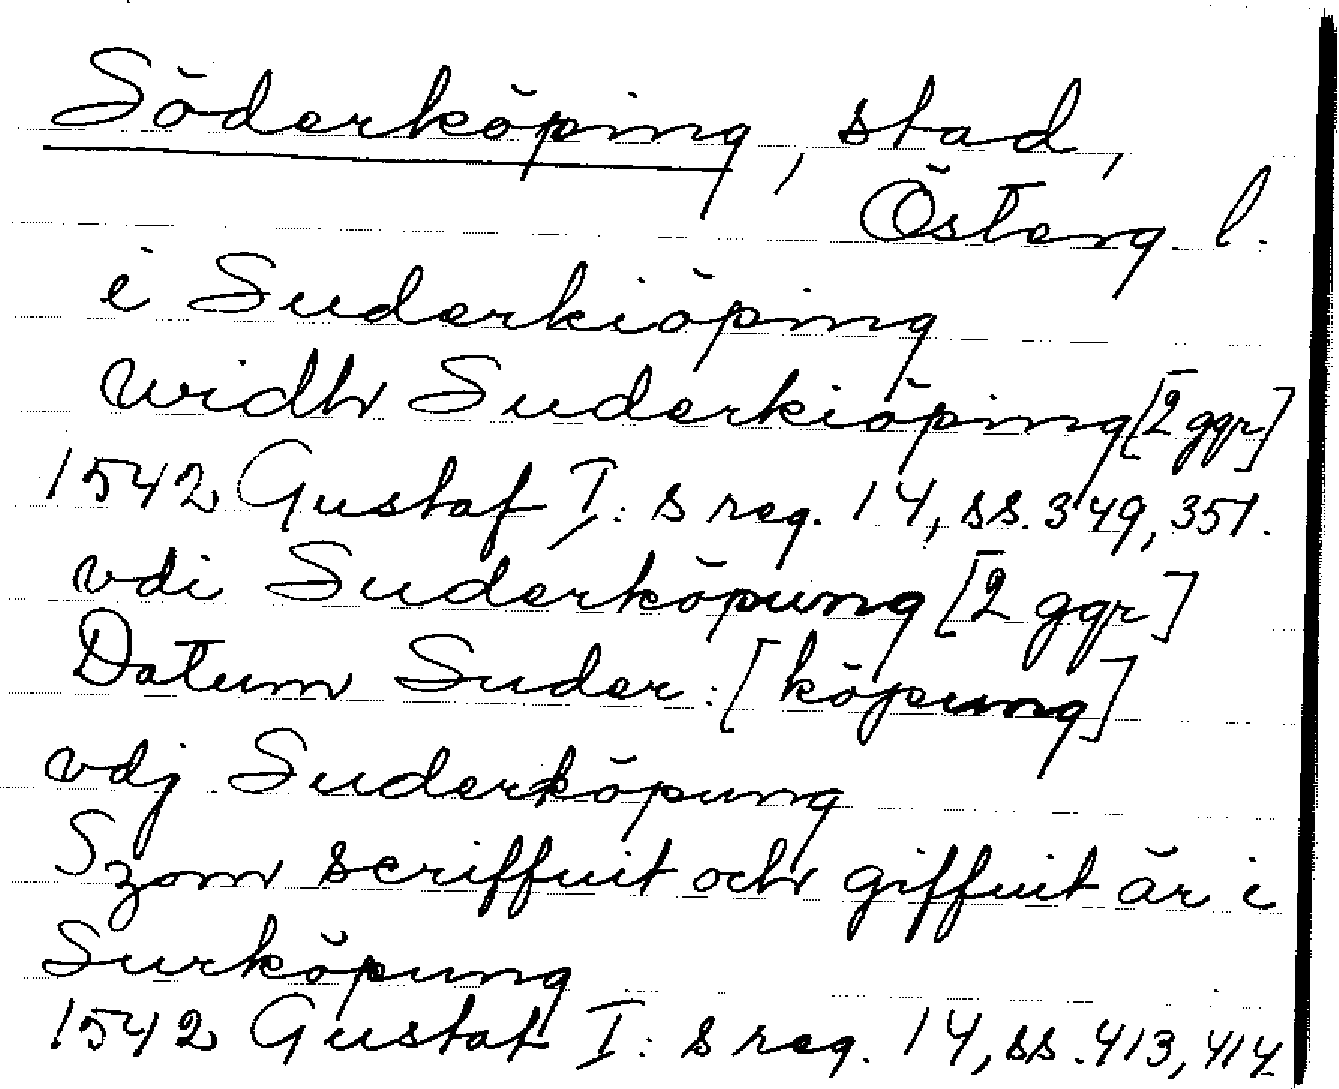 Söderköping, stad,
Österg. l.
i Suderkiöping
widh Suderkiöping [2 ggr]
1542 Gustaf I:s reg. 14, ss. 349, 351.
vdi Suderköpung [2 ggr]
Datum Suder:[köpung]
vdj Suderköpung
Szom scriffuit och giffuit är i
Surköpung
1542 Gustaf I:s reg. 14, ss. 413, 414